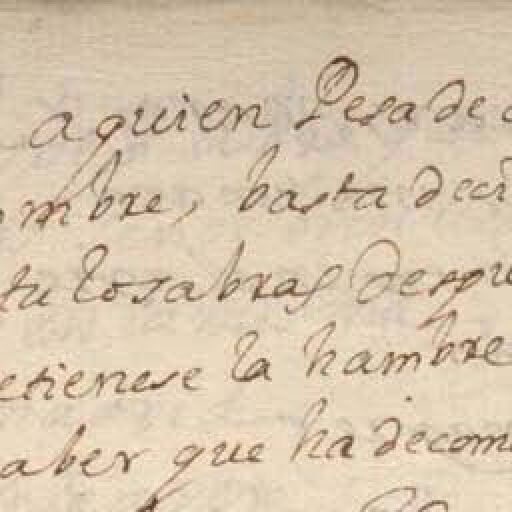 a quien Pesa de
ombre, basta deci
tu lo sabras despu
etienese la hambre
aber que ha de com